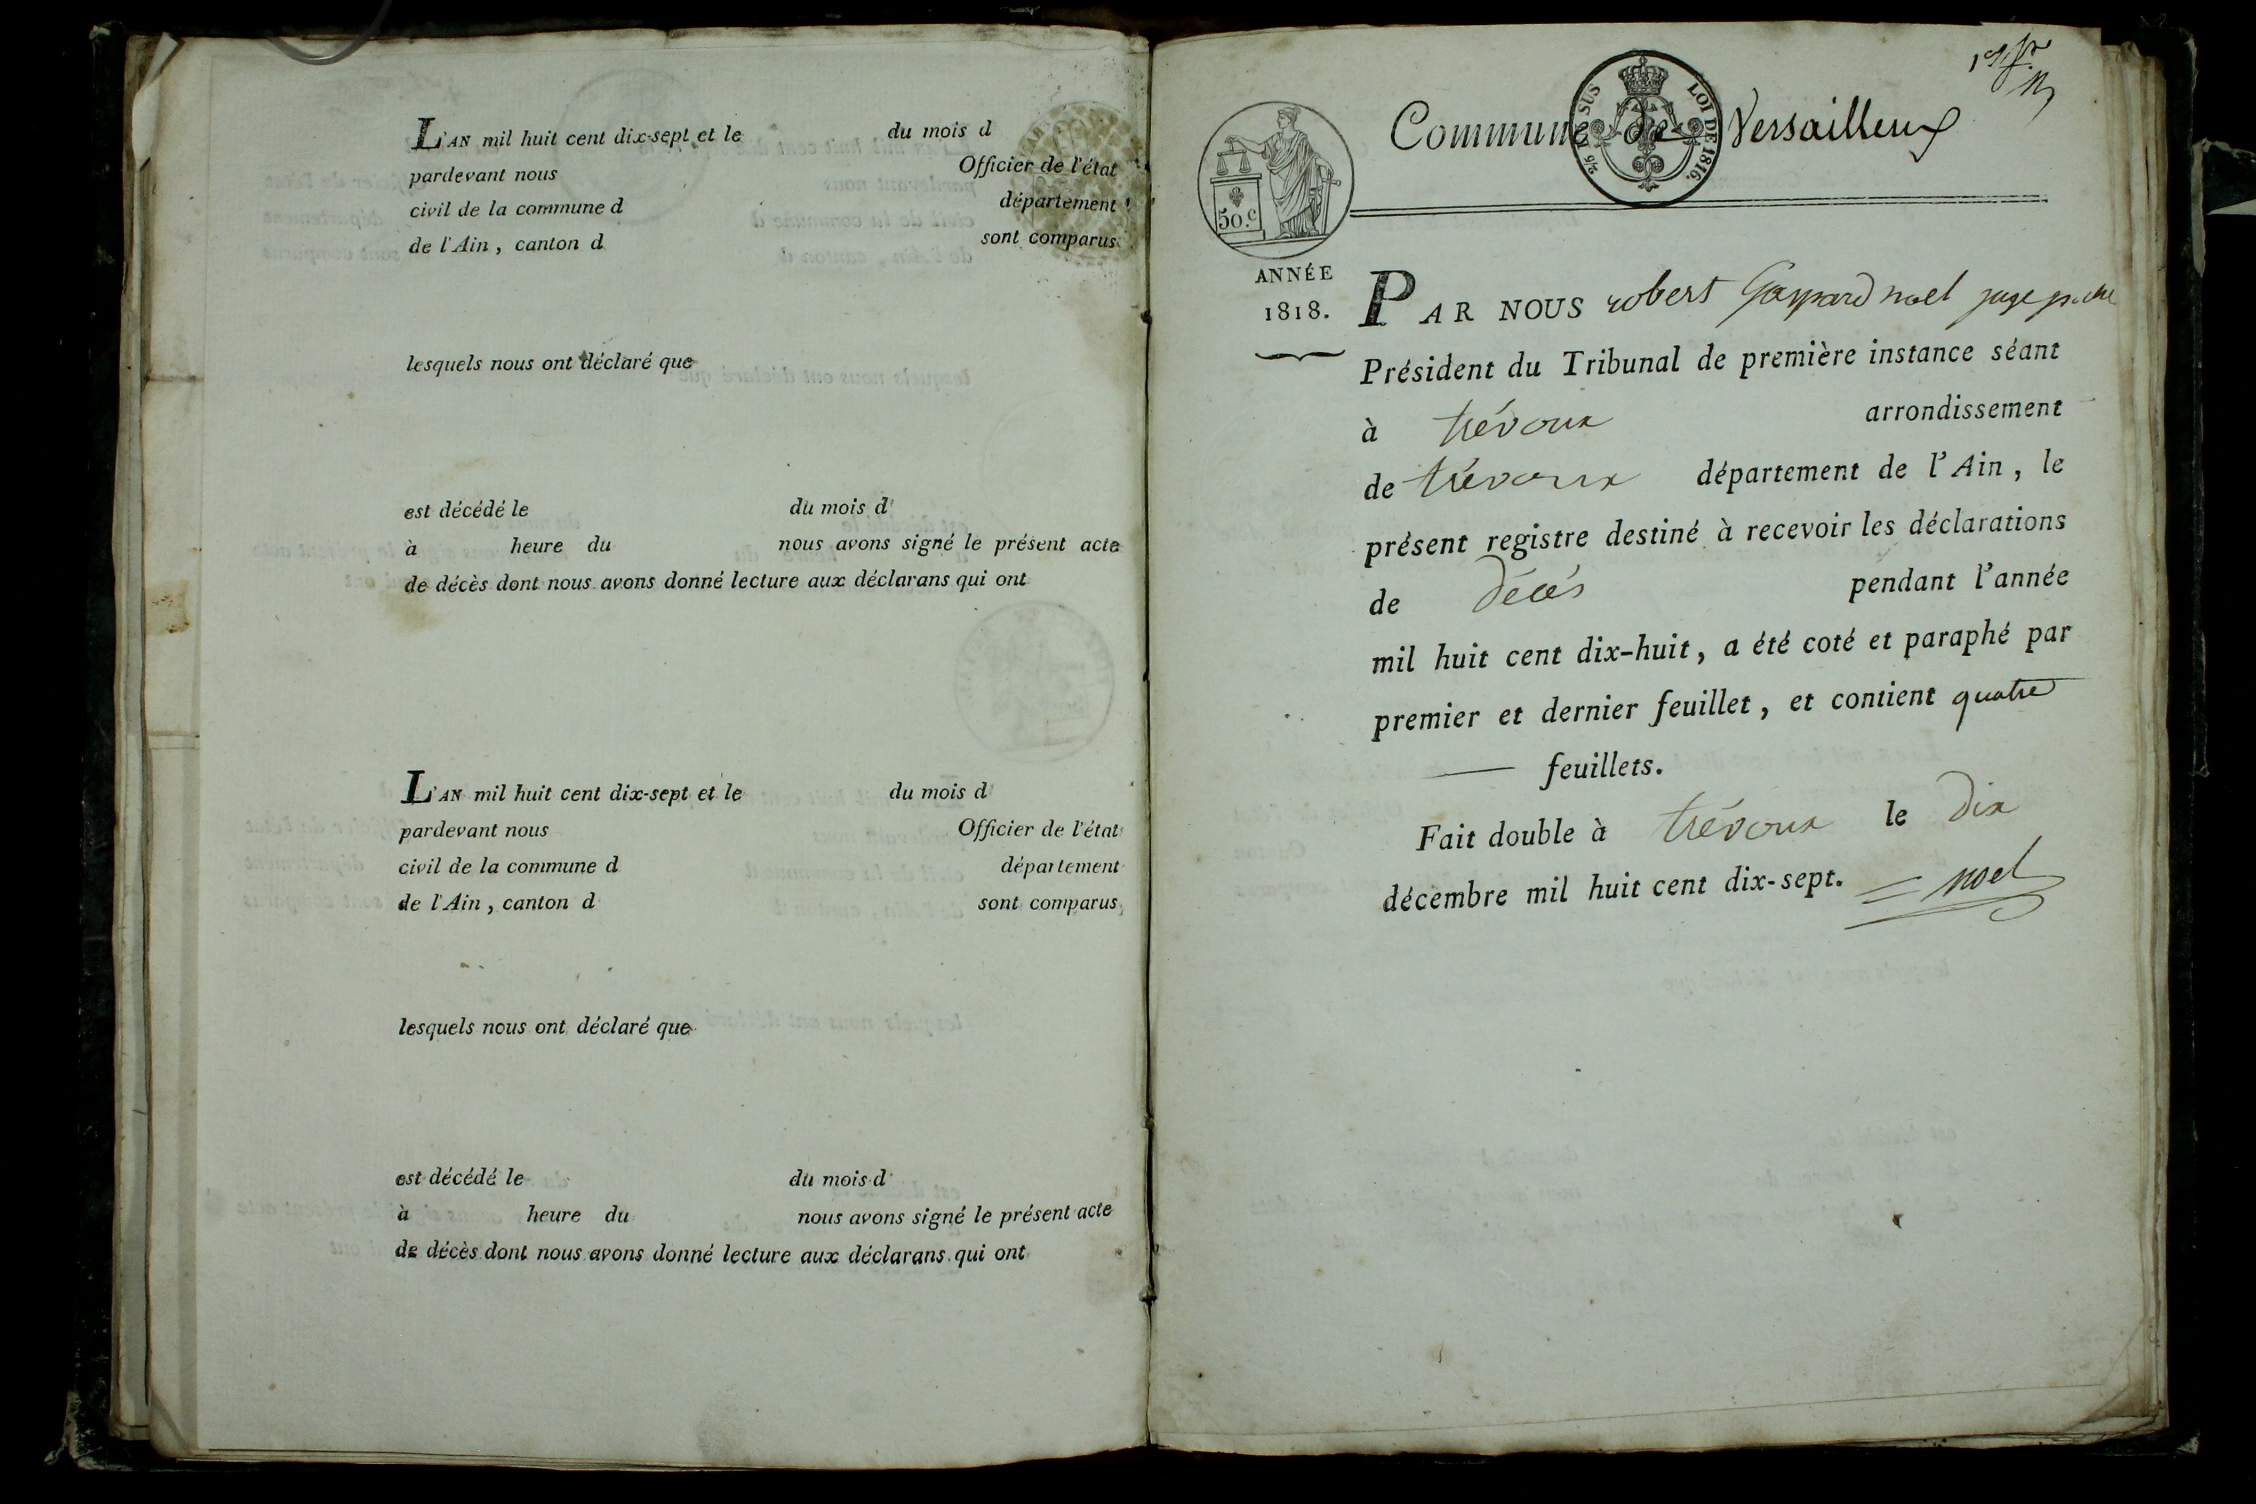 L'AN mil huit cent dix-sept et le du mois d
pardevant nous Officier de l'état
civil de la commune d département
de l'Ain, canton d sont comparus
lesquels nous ont déclaré que
est décédé le du mois d
à heure du nous avons signé le présent acte
de décès dont nous avons donné lecture aux déclarans qui ont
L'AN mil huit cent dix-sept et le du mois d
pardevant nous Officier de l'état
civil de la commune d département
de l'Ain, canton d sont comparus
lesquels nous ont déclaré que
est décédé le du mois d
à heure du nous avons signé le présent acte
de décès dont nous avons donné lecture aux déclarans qui ont
Commune de Versailleux
EN SUS LOI DE 1816.
50.c
ANNÉE
1818.
PAR NOUS robert Gaspard noel juge
Président du Tribunal de première instance séant
à trévoux arrondissement
de trévoux département de l'Ain, le
présent registre destiné à recevoir les déclarations
de Décès pendant l'année
mil huit cent dix-huit, a été coté et paraphé par
premier et dernier feuillet, et contient quatre
— feuillets.
Fait double à trévoux le dix
décembre mil huit cent dix-sept. noel